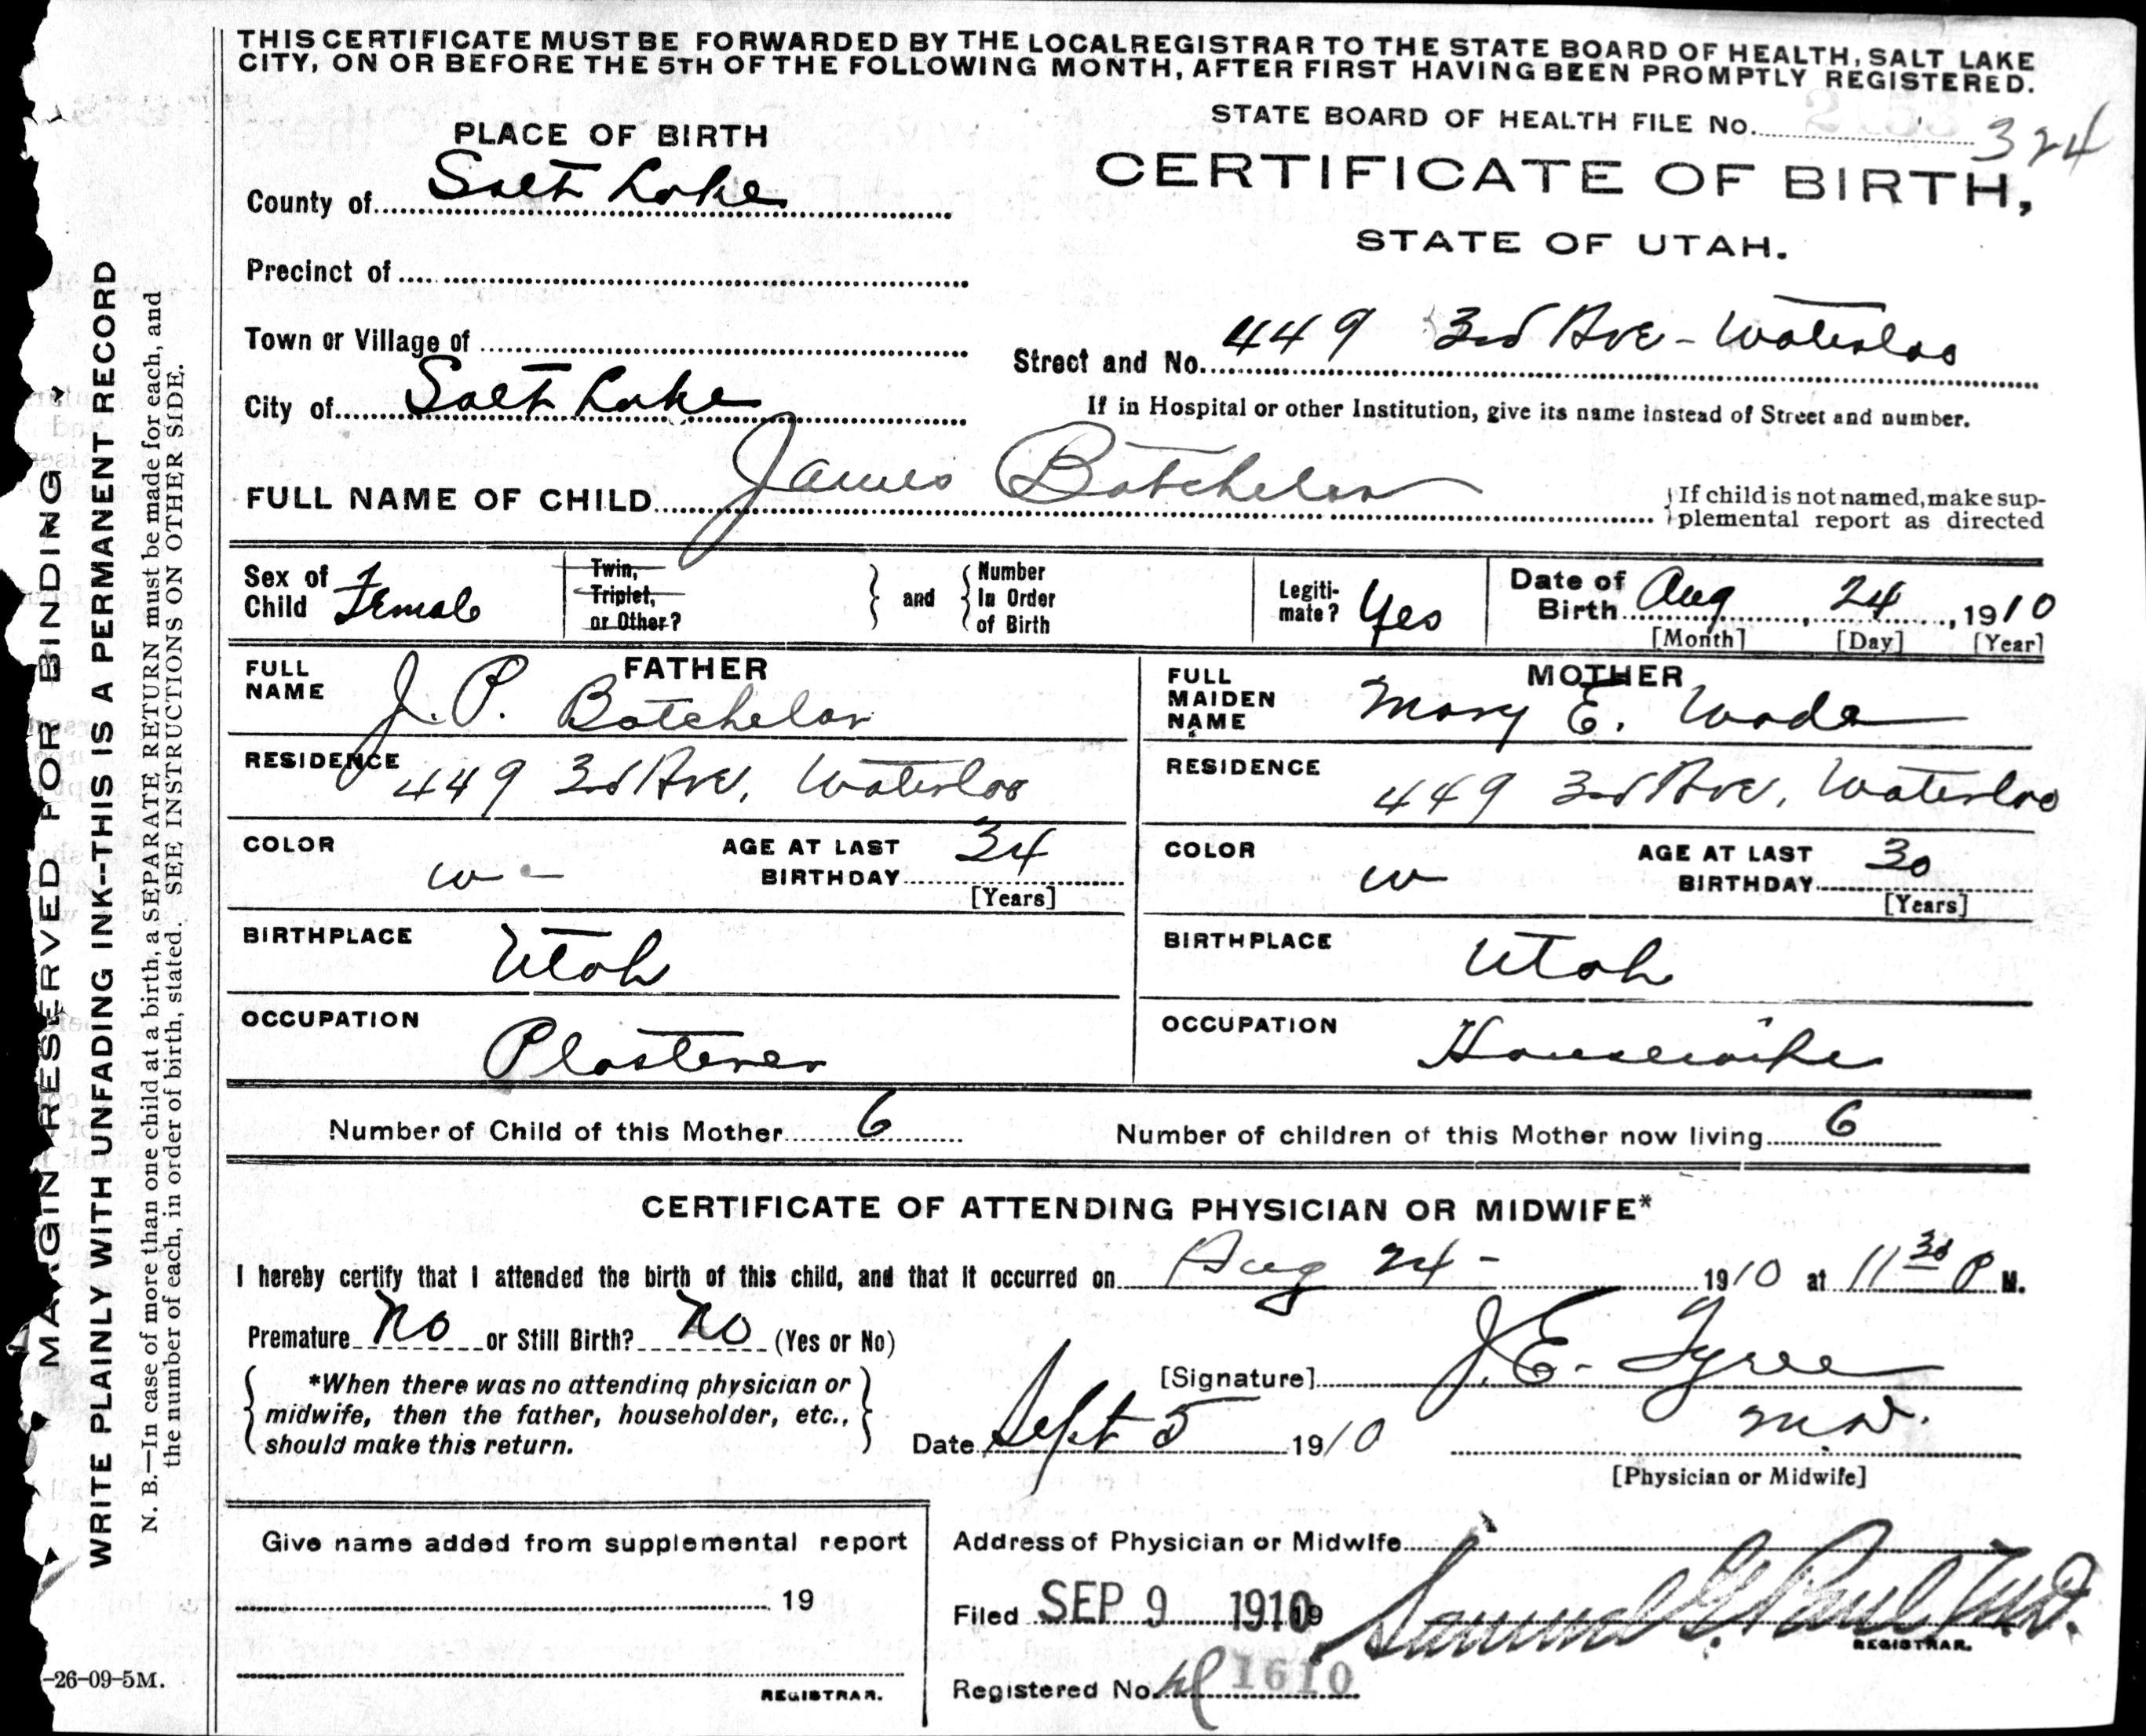 THIS CERTIFICATE MUST BE FORWARDED BY THE LOCAL REGISTRAR TO THE STATE BOARD OF HEALTH, SALT LAKE
CITY, ON OR BEFORE THE 5TH OF THE FOLLOWING MONTH, AFTER FIRST HAVING BEEN PROMPTLY REGISTERED.
STATE BOARD OF HEALTH FILE No. 324
PLACE OF BIRTH
CERTIFICATE OF BIRTH,
STATE OF UTAH.
County of Salt Lake
Precinct of
Town or Village of
Street and No. 449 3rd Ave - Waterloo
City of Salt Lake
If in Hospital or other Institution, give its name instead of Street and number.
FULL NAME OF CHILD James Batchelor
If child is not named, make sup-
plemental report as directed
Sex of Child Female
Twin, Triplet, or Other? and Number In Order of Birth
Legiti-mate? Yes
Date of Birth Aug 24, 1910
[Month] [Day] [Year]
FATHER
FULL NAME J. P. Batchelor
RESIDENCE 449 3rd Ave, Waterloo
COLOR w - AGE AT LAST BIRTHDAY 34
[Years]
BIRTHPLACE Utah
OCCUPATION Plasterer
MOTHER
FULL MAIDEN NAME Mary E. Wade
RESIDENCE 449 3rd Ave, Waterloo
COLOR w AGE AT LAST BIRTHDAY 30
[Years]
BIRTHPLACE Utah
OCCUPATION Housewife
Number of Child of this Mother 6 Number of children of this Mother now living 6
CERTIFICATE OF ATTENDING PHYSICIAN OR MIDWIFE*
I hereby certify that I attended the birth of this child, and that it occurred on Aug 24 - 1910 at 11 30 P M.
Premature No or Still Birth? No (Yes or No)
*When there was no attending physician or
midwife, then the father, householder, etc.,
should make this return.
[Signature] J. E. Tyree
Date Sept 5 1910 M.D.
[Physician or Midwife]
Give name added from supplemental report
19
REGISTRAR.
Address of Physician or Midwife
Filed SEP 9 1910 19 Samuel G. Paul M.D.
REGISTRAR.
Registered No. 1610
MARGIN RESERVED FOR BINDING
WRITE PLAINLY WITH UNFADING INK--THIS IS A PERMANENT RECORD
N. B.—In case of more than one child at a birth, a SEPARATE RETURN must be made for each, and
the number of each, in order of birth, stated. SEE INSTRUCTIONS ON OTHER SIDE.
-26-09-5M.